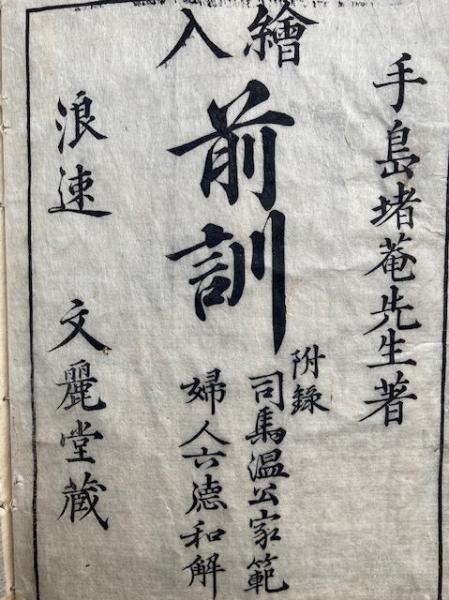 手島堵菴先生著
繪入
前訓
附錄
司馬温公家範
婦人六德和解
浪速 文麗堂藏